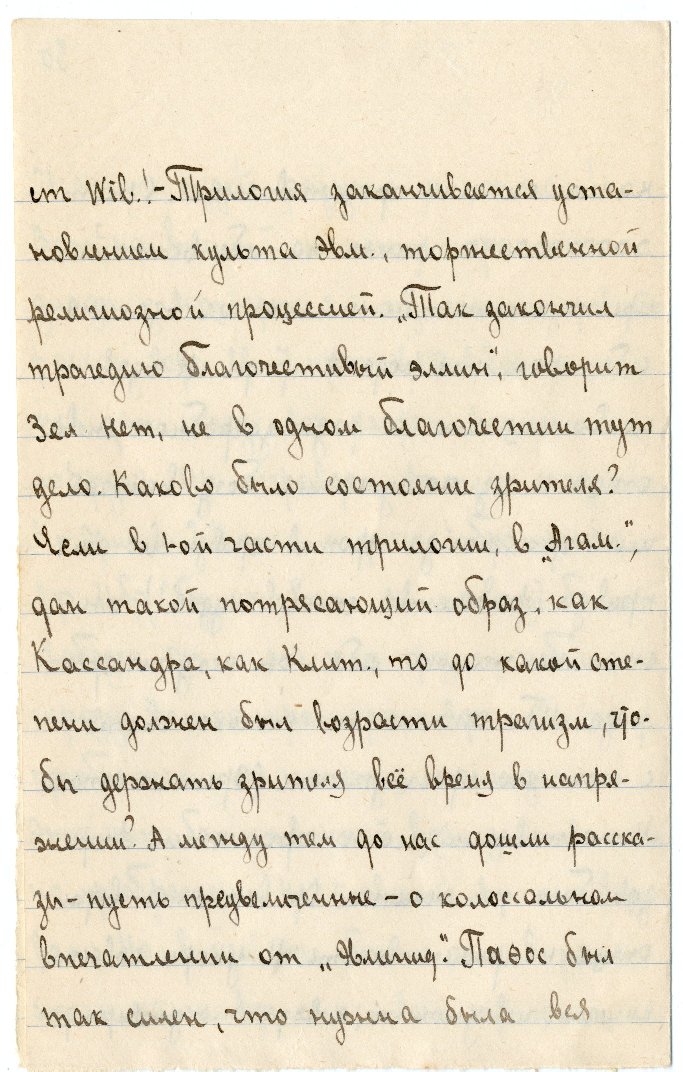 ст Wil.! – Трилогия заканчивается уста-
новлением культа Эвм., торжественной
религиозной процессией. „Так закончил
трагедию благочестивый эллин", говорит
Зел. Нет, не в одном благочестии тут
дело. Каково было состояние зрителя?
Если в I-ой части трилогии, в „Агам.",
дан такой потрясающий образ, как
Кассандра, как Клит., то до какой сте-
пени должен был возрасти трагизм, что-
бы держать зрителя всё время в напря-
жении? А между тем до нас дошли расска-
зы – пусть предвеличенные – о колоссальном
впечатлении от „Эвменид". Паѳос был
так силен, что нужна была вся